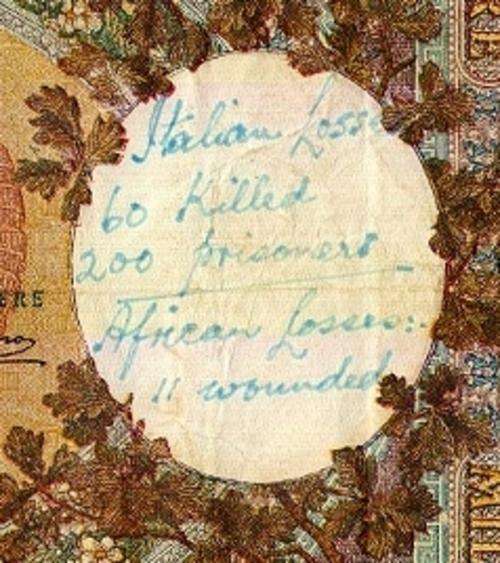 Italian Losses
60 Killed
200 prisoners
African Losses:-
11 wounded
ERE